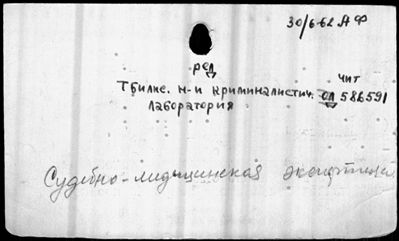 30/6-62 АФ
ред
Тбилис. н-и криминалистич. чит
ОЛ 586591
лаборатория
Судебно-медицинская экспертиза